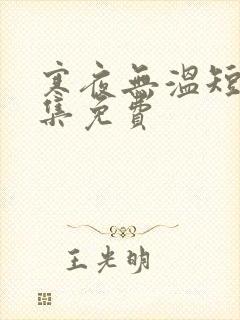 寒夜無溫短
集免費
王光明